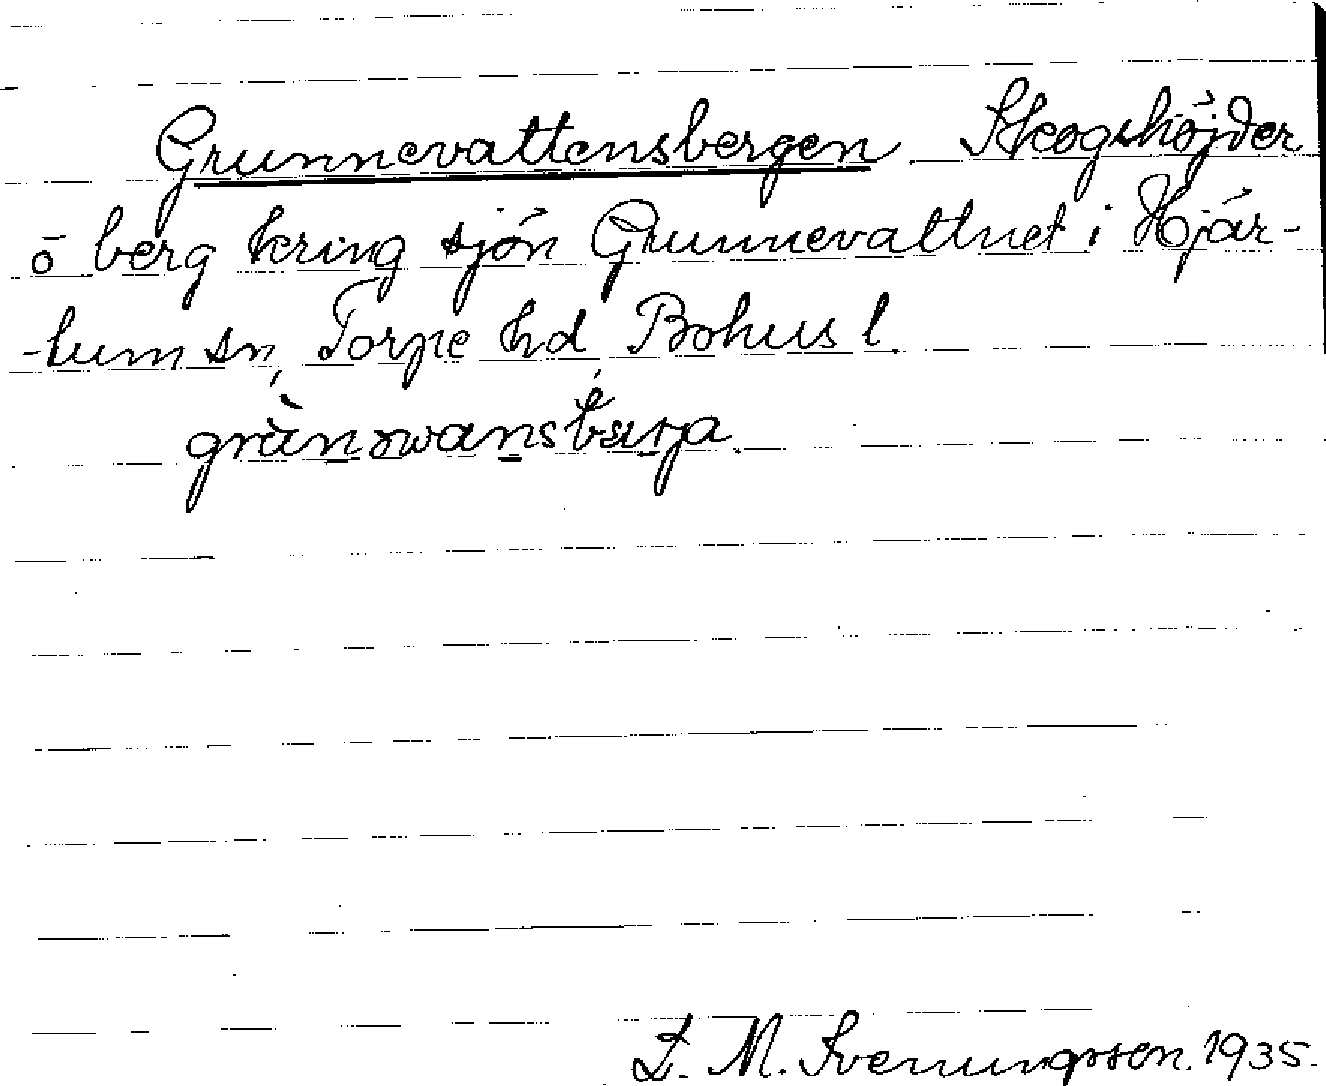 Grunnevattensbergen Skogshöjder
o berg kring sjön Grunnevattnet i Hjär-
-tum sn, Torpe hd Bohus l.
L. M. Svenungsson. 1935.